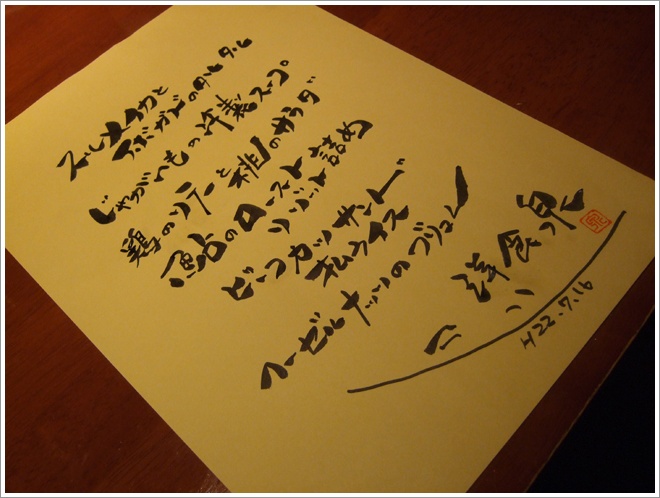 スルメイカと
アボガドのタルタル
じゃがいもの冷製スープ
鶏のソテーと桃のサラダ
鮎のロースト
リゾット詰め
ビーフカツサンド
オムライス
ヘーゼルナッツのブリュレ
洋食
H22.7.16